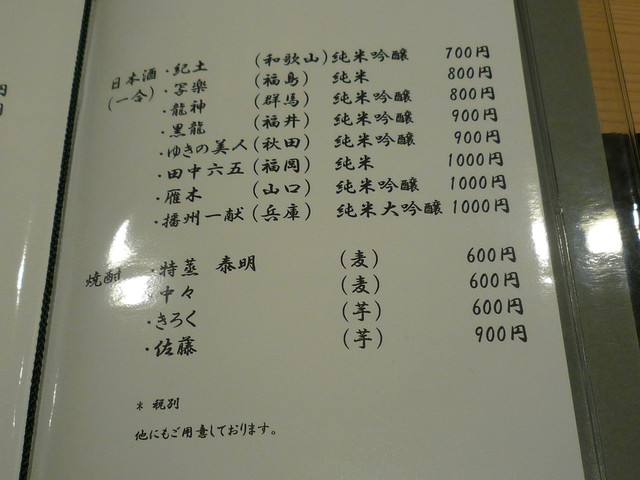 日本酒 ・紀土 (和歌山) 純米吟醸 700円
(一合) ・写楽 (福島) 純米 800円
・龍神 (群馬) 純米吟醸 800円
・黒龍 (福井) 純米吟醸 900円
・ゆきの美人 (秋田) 純米吟醸 900円
・田中六五 (福岡) 純米 1000円
・雁木 (山口) 純米吟醸 1000円
・播州一献 (兵庫) 純米大吟醸 1000円
焼酎 ・特蒸 泰明 (麦) 600円
・中々 (麦) 600円
・きろく (芋) 600円
・佐藤 (芋) 900円
* 税別
他にもご用意しております。
円
円